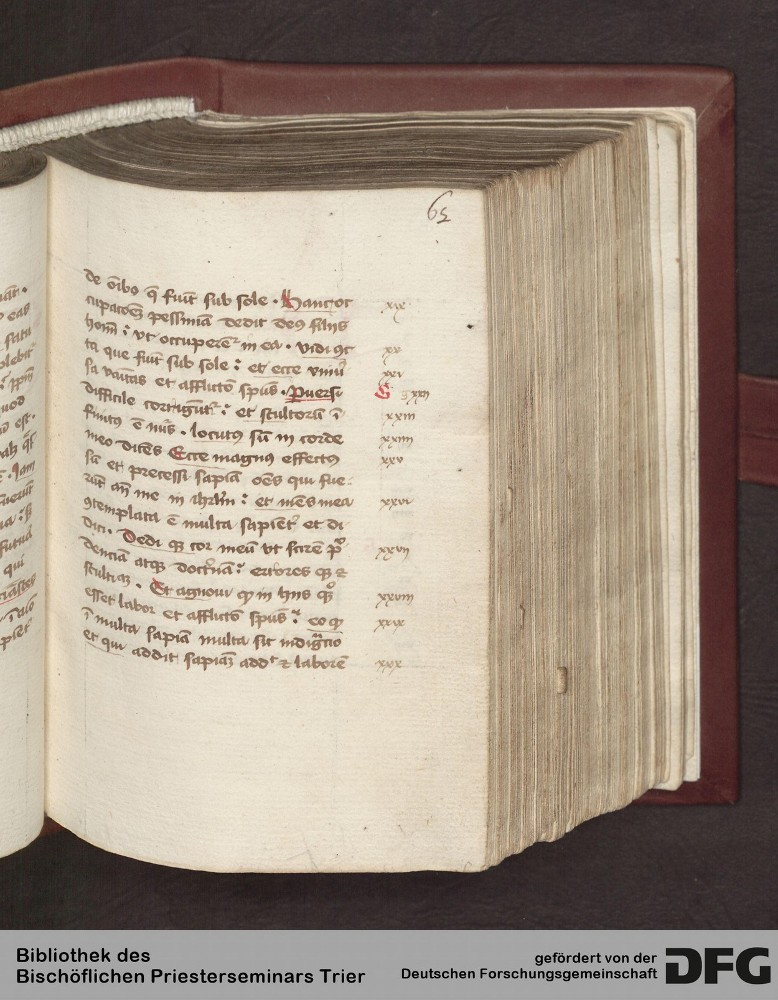 65
de oībꝰ q̄ fiūt sub sole . Hanc oc
cupacōeȝ pessimā dedit deꝰ filijs
hoīm : vt occuperēt̉ in ea . vidi ꝯc
ta que fiūt sub sole : et ecce vniū̉
sa vāitas et afflictō spūs . Puersi
difficile corrigūt̉ : et stultorū ī
finitꝰ ē nūs . locutꝰ sū in corde
meo dicēs Ecce magnꝰ effectꝰ
sū et precessi sapīa oēs qui fue
rūt an̄ me in ihrl̄m : et mēs mea
ꝯtemplata ē multa sapient̉ et di
dici . Dedi qȝ cor meū vt scirē pͬ
denciā atqȝ doctͥnā : errores qȝ et
stulticiā . Et agnoui qͥ in hijs qͦȝ
esset labor et afflictō spūs : eo qͥ
ī multa sapīa multa sit indigͣcio
et qui addit sapiāȝ addͭ et laborē
xix
xx
xxi
xxii
xxiii
xxiiii
xxv
xxvi
xxvii
xxviii
xxix
xxx
Bibliothek des
Bischöflichen Priesterseminars Trier
gefördert von der
Deutschen Forschungsgemeinschaft
DFG